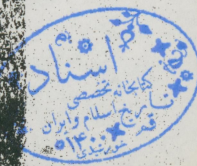 اسناد
کتابخانه تخصصی
تاریخ اسلام و ایران
قم